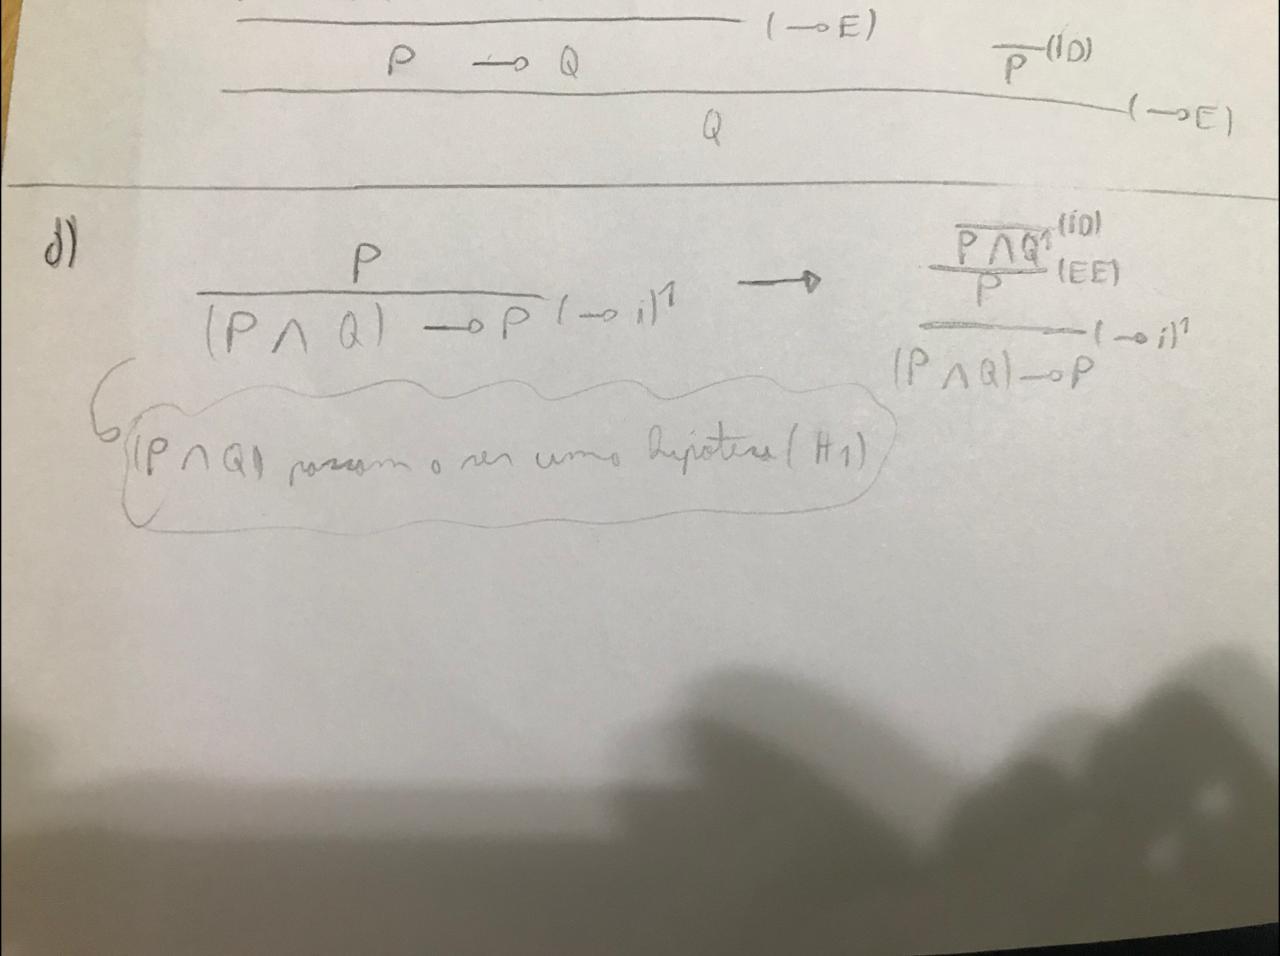 (→E)
P → Q
P (ID)
(→E)
Q
d)
P
(P ∧ Q) → P (→ i)¹
→
P ∧ Q¹ (iD)
P (EE)
(→ i)¹
(P ∧ Q) → P
(P ∧ Q) passam a ser uma hipótese (H1)